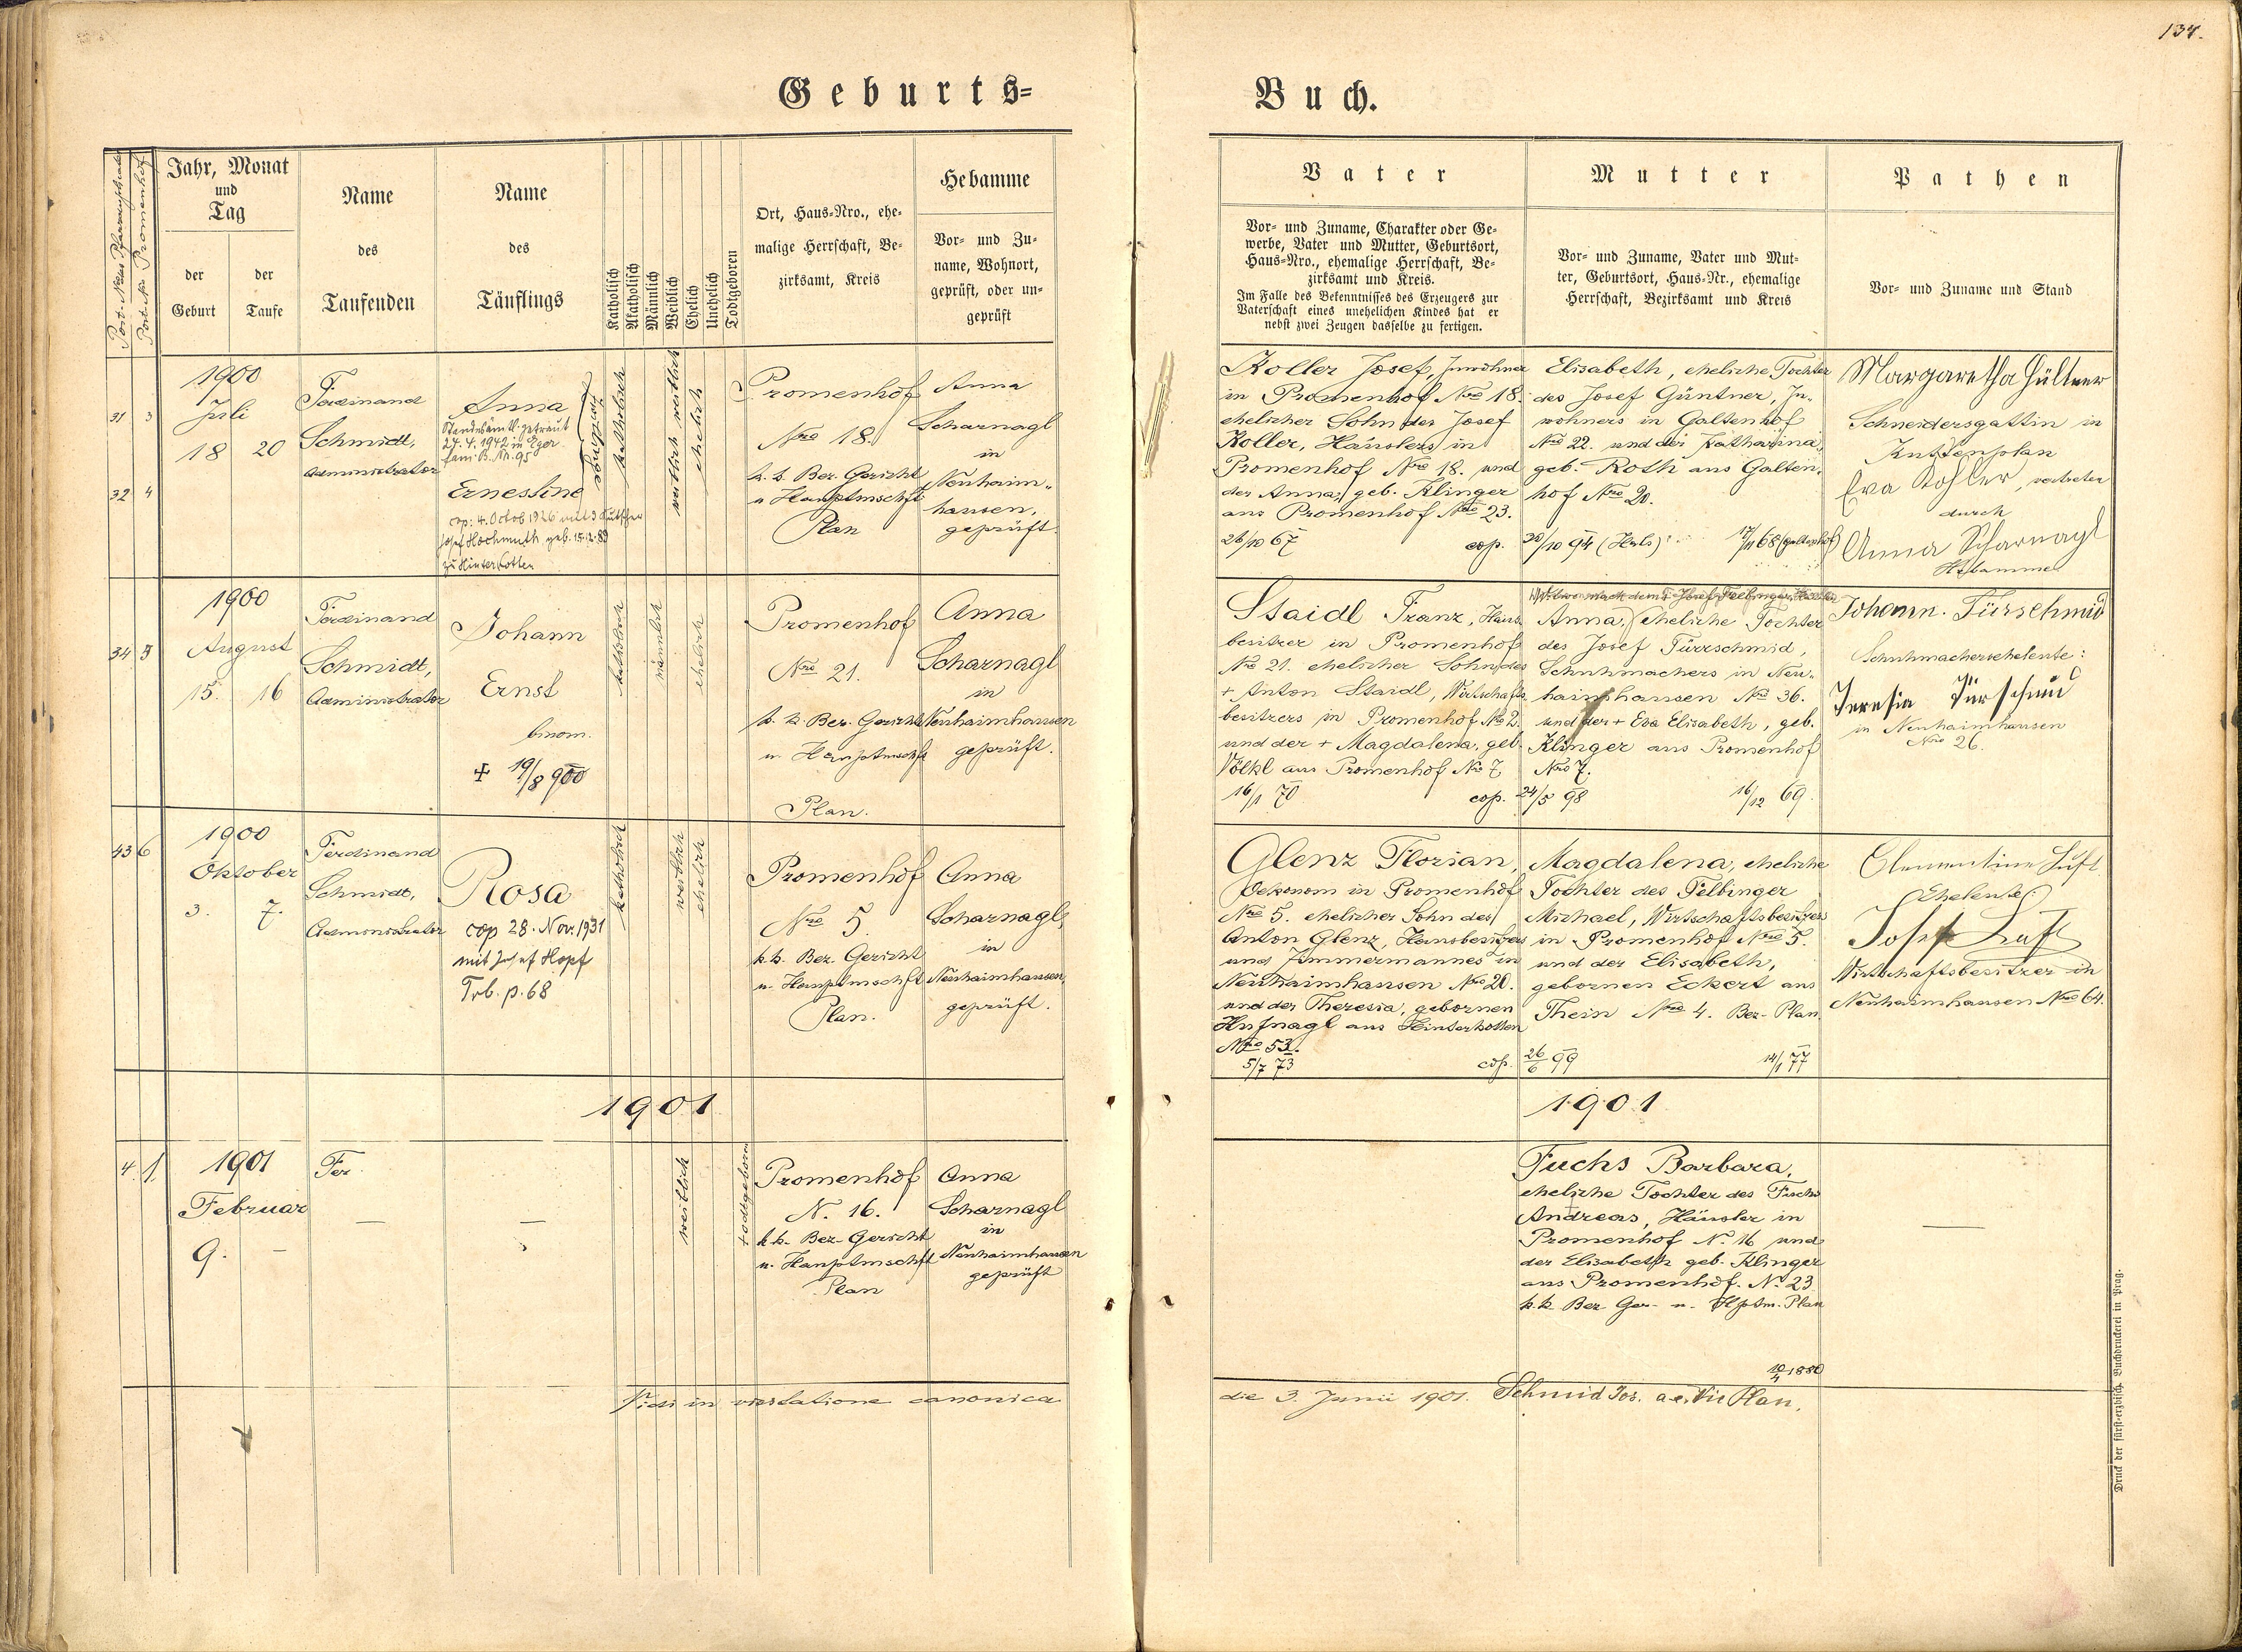 134.
Geburts=
Buch.
Jahr, Monat
und
Tag
der
Geburt
der
Taufe
Name
des
Taufenden
Name
des
Täuflings
Katholisch
Akatholisch
Männlich
Weiblich
Ehelich
Unehelich
Todtgeboren
Ort, Haus=Nro., ehe=
malige Herrschaft, Be=
zirksamt, Kreis
Hebamme
Vor= und Zu=
name, Wohnort,
geprüft, oder un=
geprüft
Vater
Vor= und Zuname, Charakter oder Ge=
werbe, Vater und Mutter, Geburtsort,
Haus=Nro., ehemalige Herrschaft, Be=
zirksamt und Kreis.
Im Falle des Bekenntnisses des Erzeugers zur
Vaterschaft eines unehelichen Kindes hat er
nebst zwei Zeugen dasselbe zu fertigen.
Mutter
Vor= und Zuname, Vater und Mut=
ter, Geburtsort, Haus=Nr., ehemalige
Herrschaft, Bezirksamt und Kreis
Pathen
Vor= und Zuname und Stand
31 3
32 4
1900
Juli
18 20
Ferdinand
Schmidt,
Administrator
Anna
Standesämtl. getraut
27. 4. 1942 in Eger
Fam. B. Nr. 95
Ernestine
cop: 4. Octob 1926 mit d Kutscher
Josef Hochmuth geb. 15.12.89
zu Hinterkotten
Zwillinge
katholisch
weiblich weiblich
ehelich
Promenhof
Nro 18.
k. k. Bez. Gericht
u Hauptmschft
Plan
Anna
Scharnagl
in
Neuhaim-
hausen,
geprüft.
Koller Josef, Inwohner
in Promenhof Nro 18.
ehelicher Sohn des Josef
Koller, Häuslers in
Promenhof Nro 18. und
der Anna, geb. Klinger
aus Promenhof Nro 23.
26/10 67 cop.
Elisabeth, eheliche Tochter
des Josef Güntner, In-
wohners in Galtenhof
Nro 22. und der Katharina,
geb. Roth aus Galten-
hof Nro 20.
30/10 94 (Hals) 17/11 68 (Galtenhof)
Margaretha Hültner
Schneidersgattin in
Kuttenplan
Eva Kohler, vertreten
durch
Anna Scharnagl
Hebamme
34 5
1900
August
15. 16
Ferdinand
Schmidt,
Administrator
Johann
Ernst
binom.
+ 19/8 900
katholisch
männlich
ehelich
Promenhof
Nro 21.
k. k. Bez. Gericht
u. Hauptmschft
Plan.
Anna
Scharnagl
in
Neuhaimhausen
geprüft.
Staidl Franz, Haus
besitzer in Promenhof
Nro 21. ehelicher Sohn des
+ Anton Staidl, Wirtschafts
besitzers in Promenhof Nro 2.
und der + Magdalena, geb.
Völkl aus Promenhof Nro 7
16/1 70 cop.
Witwe nach dem + Josef Felbinger,
Anna, eheliche Tochter
des Josef Türrschmid,
Schuhmachers in Neu-
haimhausen Nro 36.
und der + Eva Elisabeth, geb.
Klinger aus Promenhof
Nro 7.
24/5 98 16/12 69.
Johann. Türschmid
Schuhmacherseheleute:
Teresia Türschmid
in Neuhaimhausen
Nro 26.
43 6
1900
Oktober
3. 7.
Ferdinand
Schmidt,
Administrator
Rosa
cop 28. Nov. 1931
mit Josef Hopf
Trb. p. 68
katholisch
weiblich
ehelich
Promenhof
Nro 5
k. k. Bez. Gericht
u. Hauptmschft
Plan.
Anna
Scharnagl,
in
Neuhaimhausen,
geprüft.
Glenz Florian,
Oekonom in Promenhof
Nro 5. ehelicher Sohn des
Anton Glenz, Hausbesitzers
und Zimmermannes in
Neuhaimhausen Nro 20.
und der Theresia, gebornen
Hufnagl aus Hinterkotten
Nro 53.
5/7 73 cop.
Magdalena, eheliche
Tochter des Felbinger
Michael, Wirtschaftsbesitzers
in Promenhof Nro 5.
und der Elisabeth,
gebornen Eckert aus
Thein Nro 4. Bez- Plan
26/6 99 14/1 77
Clementine Luft
Eheleute:
Josef Luft
Wirtschaftsbesitzer in
Neuhaimhausen Nro 64.
1901
1901
4. 1.
1901
Februar
9. —
Fer
—
—
weiblich
todtgeboren
Promenhof
N. 16.
k. k. Bez- Gericht
u. Hauptmschft
Plan
Anna
Scharnagl
in
Neuhaimhausen
geprüft
Fuchs Barbara,
eheliche Tochter des Fuchs
Andreas, Häusler in
Promenhof N. 16 und
der Elisabeth geb. Klinger
aus Promenhof. N. 23
k. k. Bez Ger- u- Hptm. Plan
—
Vidi in visitatione canonica
die 3. Junii 1901. Schmid Jos. a.e. Vic Plan.
Druck der fürst=erzbisch. Buchdruckerei in Prag.